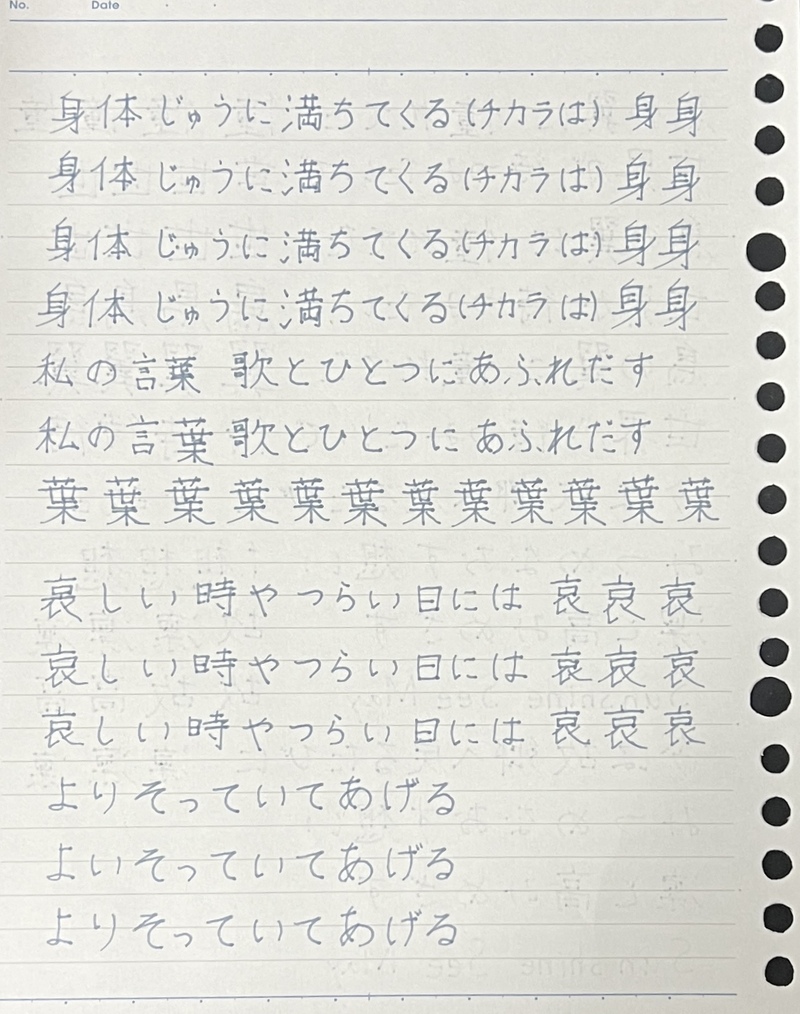 No. Date
身体 じゅうに 満ちてくる (チカラは) 身身
身体 じゅうに 満ちてくる (チカラは) 身身
身体 じゅうに 満ちてくる (チカラは) 身身
身体 じゅうに 満ちてくる (チカラは) 身身
私の言葉 歌とひとつにあふれだす
私の言葉 歌とひとつに あふれだす
葉葉葉葉葉葉葉葉葉葉葉葉
哀しい時やつらい日には 哀哀哀
哀しい時やつらい日には 哀哀哀
哀しい時やつらい日には 哀哀哀
よりそっていてあげる
よいそっていてあげる
よりそっていてあげる